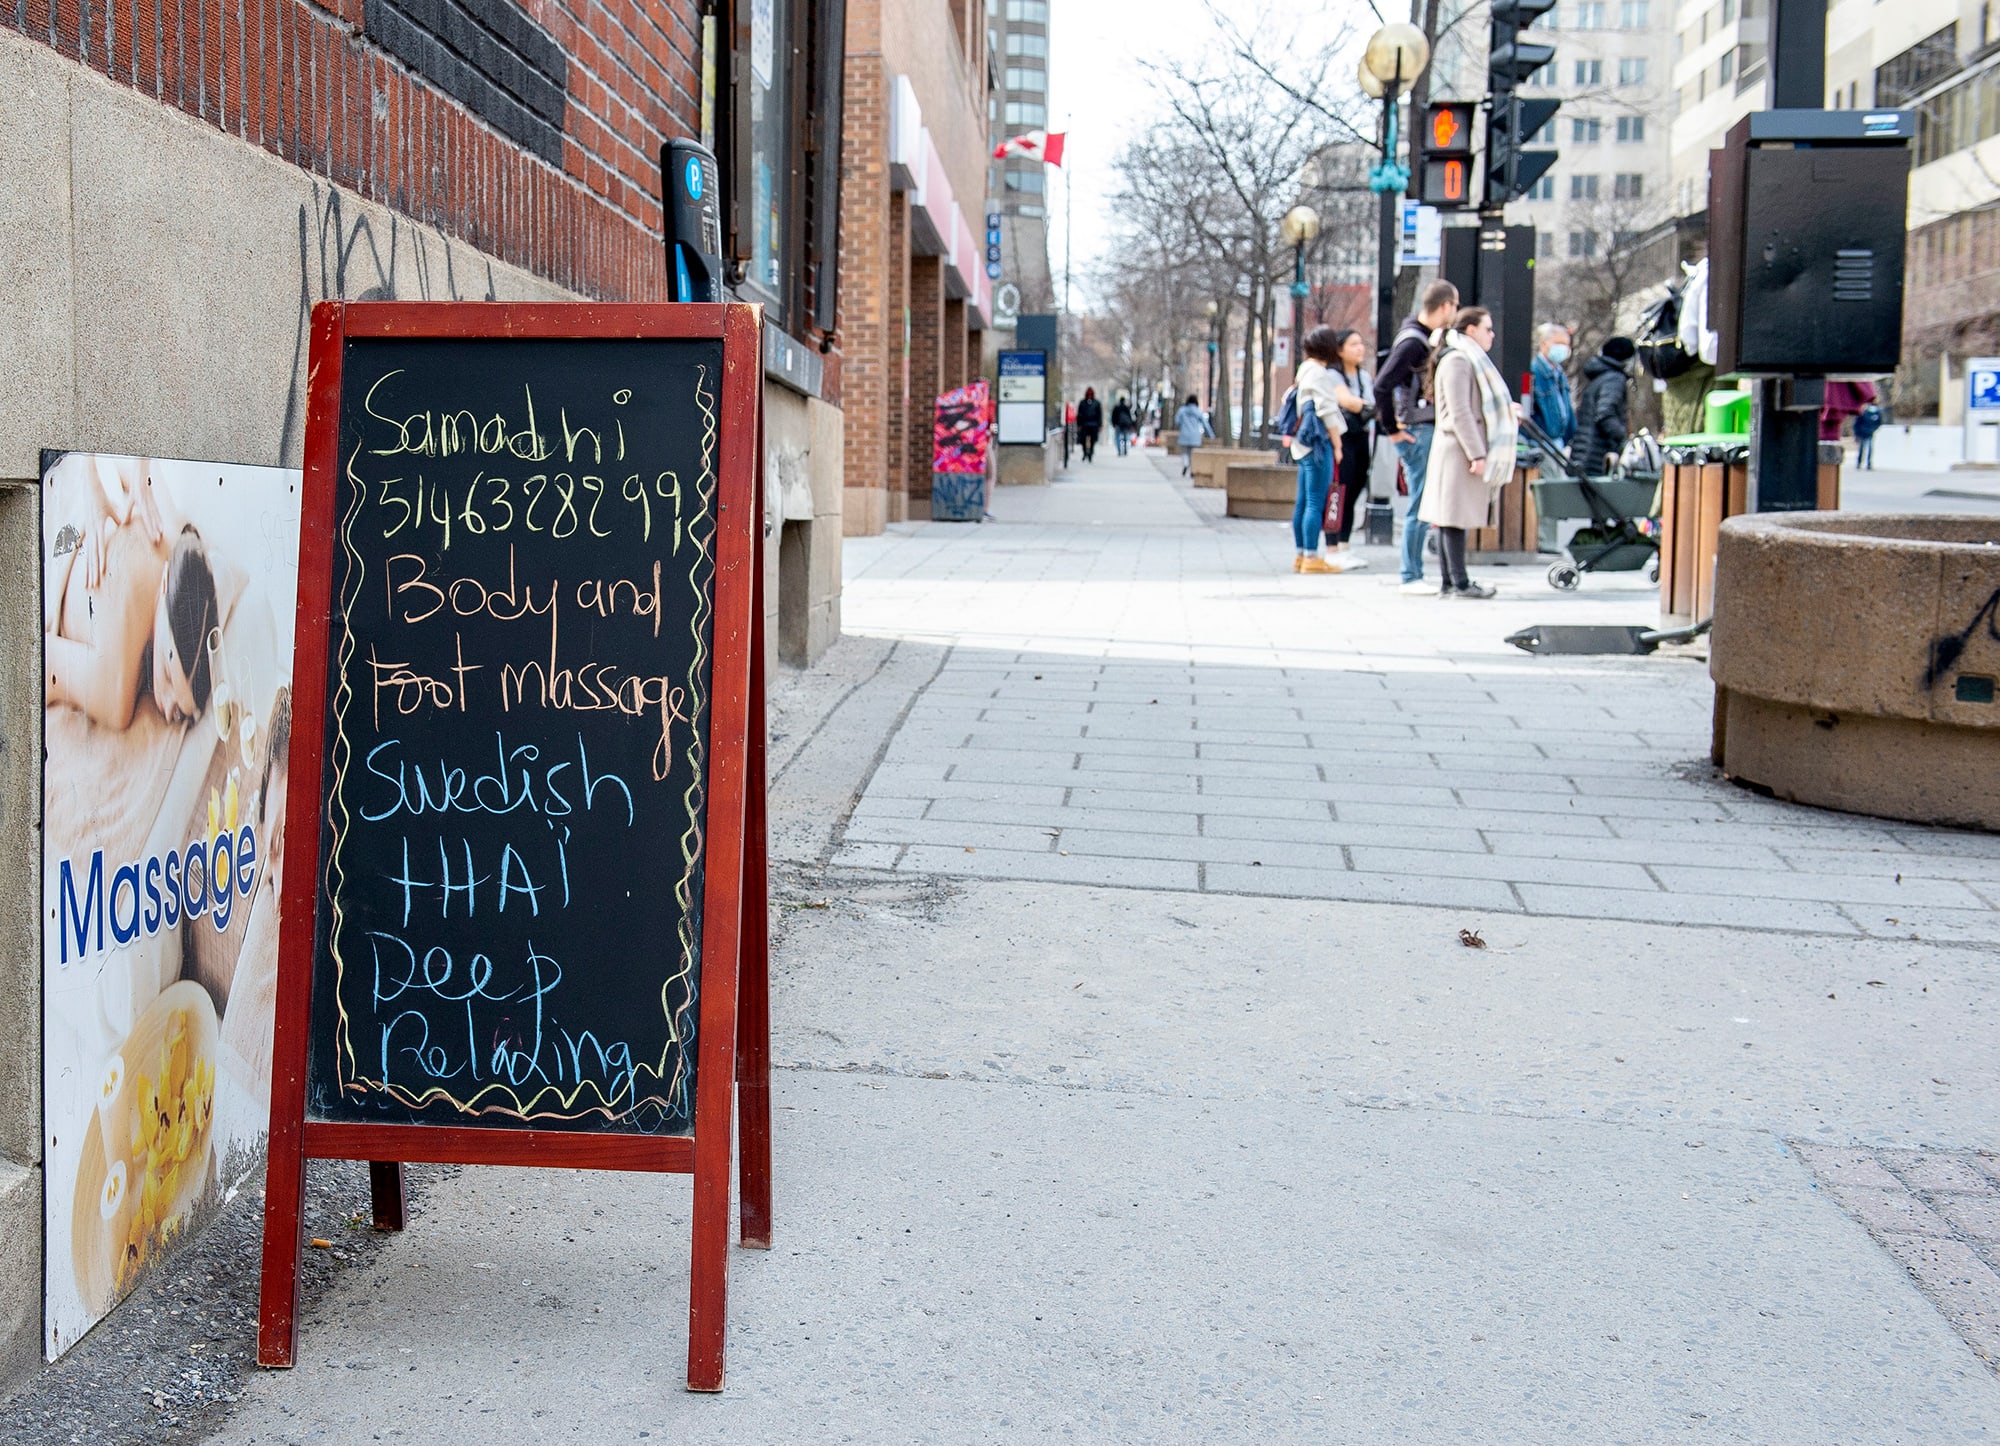 Samadhi
5146328299
Body and
Foot massage
Swedish
THAÏ
Deep
Relaxing
Massage
P
0
P